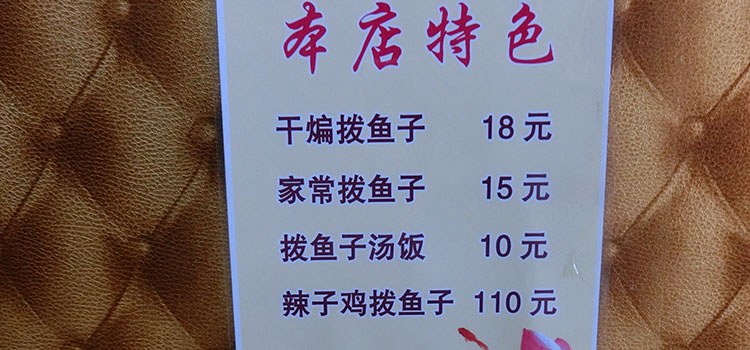 本店特色
干煸拨鱼子 18元
家常拨鱼子 15元
拨鱼子汤饭 10元
辣子鸡拨鱼子 110元